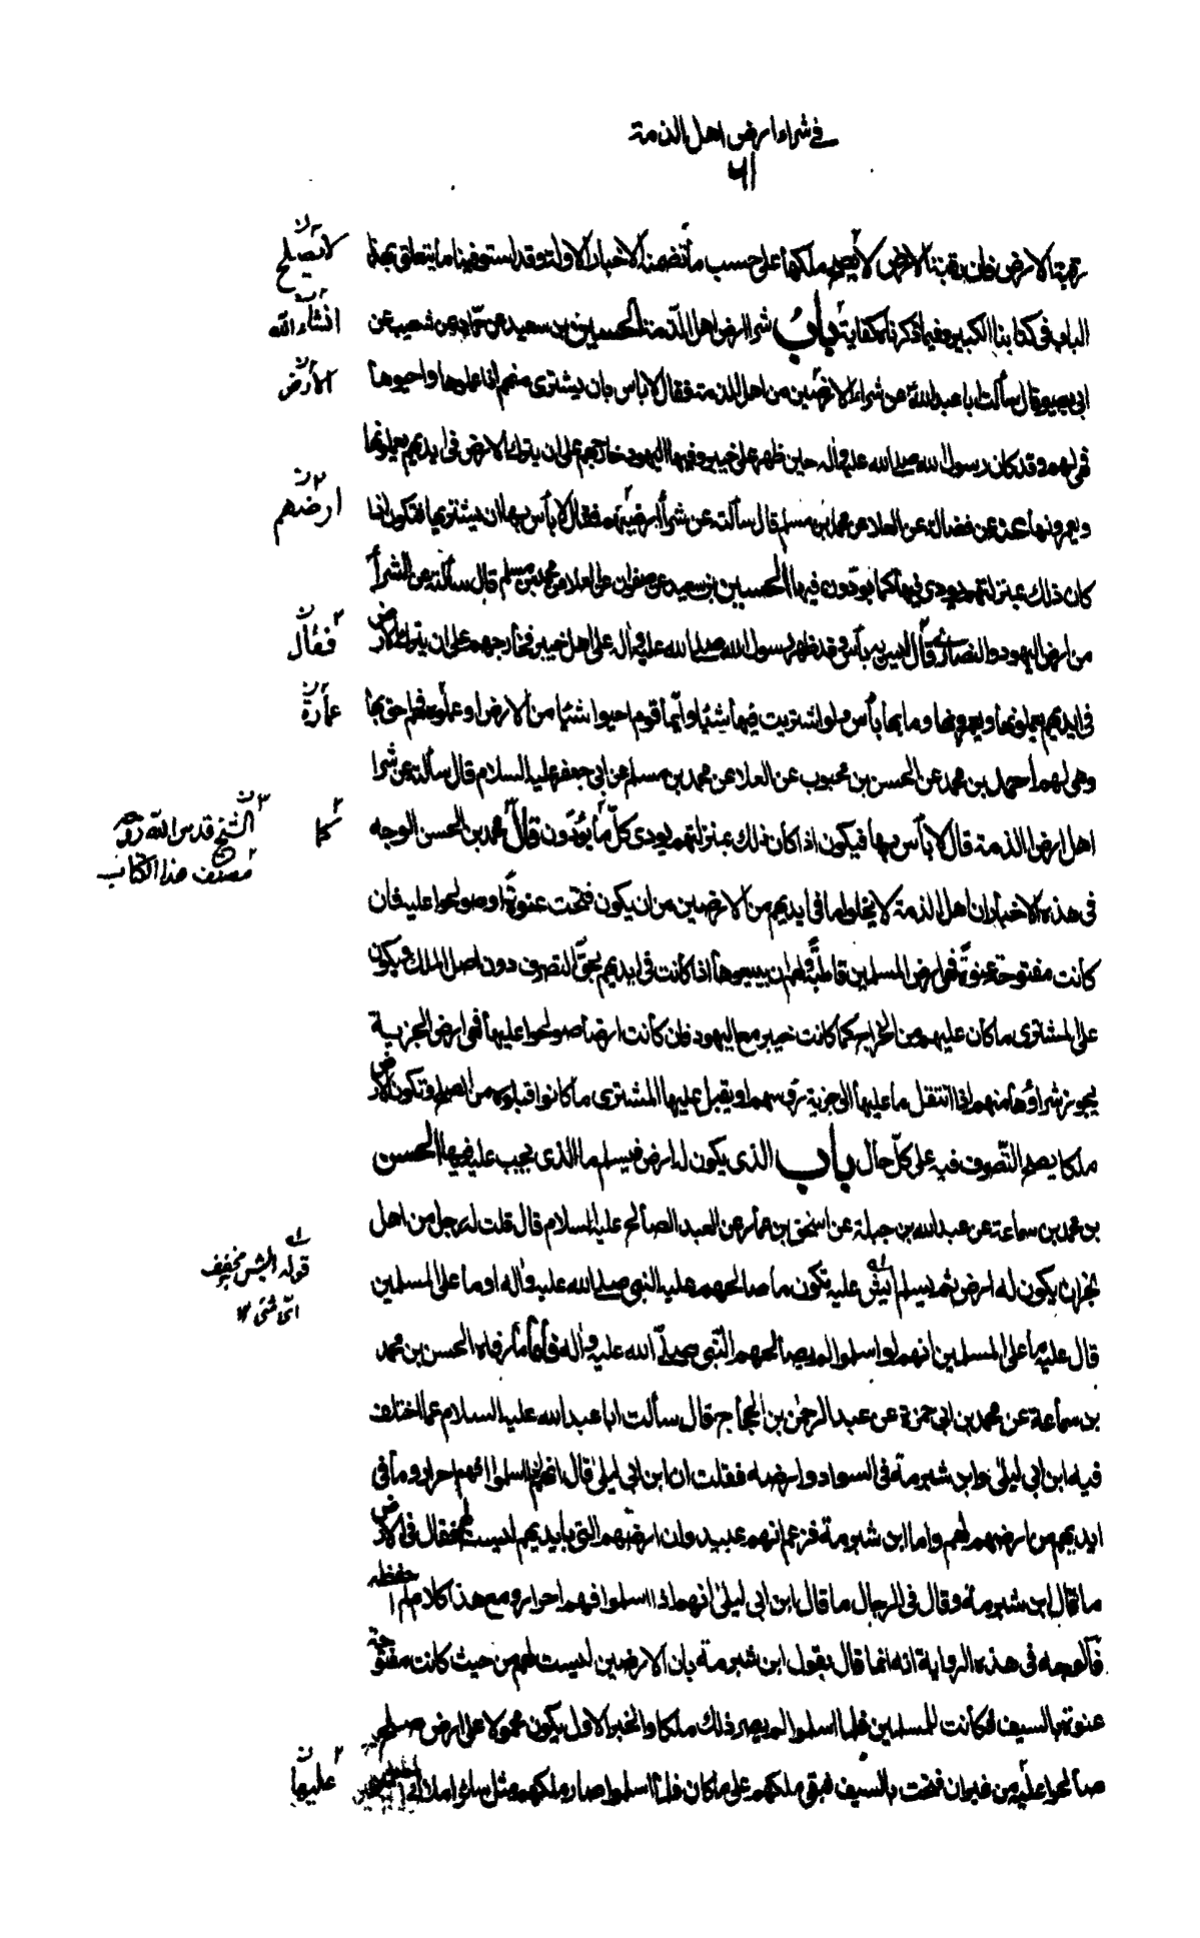 في شراء ارض اهل الذمة
٦١
رقبة الارض فان رقبة الارض لا يصح ملكها على حسب ما تضمنه الاخبار الاولة وقد استوفينا ما يتعلق بهذا
لا تصلح
الباب في كتابنا الكبير وفيما ذكرناه كفاية باب شرا ارض اهل الذمة الحسين بن سعيد عن حماد عن شعيب عن
انشاء الله
ابي بصير قال سألت ابا عبد الله عن شراء الارضين من اهل الذمة فقال لا باس بان يشترى منهم اذا عملوها واحيوها
الأرض
فهي لهم وقد كان رسول الله صلى الله عليه وآله حين ظهر على خيبر وفيها اليهود خارجهم على ان يترك الارض في ايديهم يعملونها
ويعمرونها عنه عن فضالة عن العلا عن محمد بن مسلم قال سألته عن شرأ ارضيهم فقال لا بأس بها ان يشتريها فتكون اذا
ارضهم
كان ذلك بمنزلتهم يودي فيها كما يودون فيها الحسين بن سعيد عن صفوان عن العلا عن محمد بن مسلم قال سألته عن الشرأ
من ارض اليهود والنصارى قال ليس به بأس وقد ظهر رسول الله صلى الله عليه وآله على اهل خيبر فخارجهم على ان يترك الارض
فقال
في ايديهم يعملونها ويعمرونها وما بها بأس ولو اشتريت فيها شيئا وايما قوم احيوا شيئا من الارض او عملوه فهم احق بها
عمارة
وهي لهم احمد بن محمد عن الحسن بن محبوب عن العلا عن محمد بن مسلم عن ابي جعفر عليه السلام قال سألته عن شرا
اهل ارض الذمة قال لا بأس بها فيكون اذا كان ذلك بمنزلتهم يودى كل ما يؤدون قال محمد بن الحسن الوجه
كما
الشيخ قدس الله روحه
مصنف هذا الكتاب
في هذه الاخبار ان اهل الذمة لا يخلوا ما في ايديهم من الارضين من ان يكون فتحت عنوة او صولحوا عليه فان
كانت مفتوحة عنوة فهي ارض المسلمين قاطبة ولهم ان يبيعوها اذا كانت في ايديهم بحق التصرف دون اصل الملك ويكون
على المشترى ما كان عليهم من الخراج كما كانت خيبر مع اليهود فان كانت ارضا صولحوا عليها فهي ارض الجزية
يجوز شراؤها منهم اذا انتقل ما عليها الى جزية رؤسهم او يقبل عليها المشترى ما كانوا قبلوه من الصلح وتكون الارض
ملكا يصح التصرف فيه على كل حال باب الذى يكون له ارض فيسلم ما الذى يجب عليه فيها الحسن
بن محمد بن سماعة عن عبد الله بن جبلة عن اسحق بن عمار عن العبد الصالح عليه السلام قال قلت له رجل من اهل
نجران يكون له ارض ثم يسلم ايش عليه تكون ما صالحهم عليه النبي صلى الله عليه وآله او ما على المسلمين
قوله ايش مخفف
اي شئ ١٢
قال عليه ما على المسلمين انهم لو اسلموا لم يصالحهم النبي صلى الله عليه وآله فأما ما رواه الحسن بن محمد
بن سماعة عن محمد بن ابي حمزة عن عبد الرحمن بن الحجاج قال سألت ابا عبد الله عليه السلام عما اختلف
فيه ابن ابي ليلى وابن شبرمة في السواد وارضه فقلت ان ابن ابي ليلى قال انهم اذا اسلموا انهم احرار وما في
ايديهم من ارضهم لهم واما ابن شبرمة فزعم انهم عبيد وان ارضهم التي بايديهم ليست لهم فقال في الارض
ما قال ابن شبرمة وقال في الرجال ما قال ابن ابي ليلى انهم اذا اسلموا فهم احرار ومع هذا كلام لم احفظه
فالوجه في هذه الرواية انه انما قال بقول ابن شبرمة بان الارضين ليست لهم من حيث كانت مفتوحة
عنوة بالسيف فكانت للمسلمين فلما اسلموا لم يصر ذلك ملكا والخبر الاول يكون محمولا على ارض صلح
صالحوا عليه من غير ان فتحت بالسيف فبقى ملكهم على ما كان فلما اسلموا صار ملكهم مثل ساير املاك المسلمين
عليها